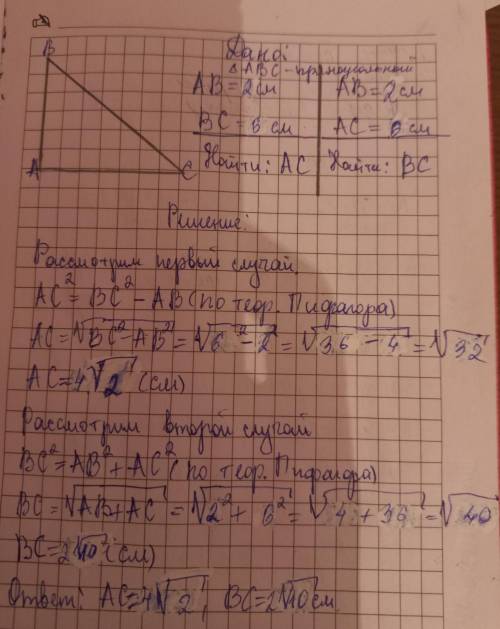 Дано:
B
△ABC - прямоугольный
AB = 2 см
AB = 2 см
BC = 6 см
AC = 6 см
A
C
Найти: AC
Найти: BC
Решение:
Рассмотрим первый случай
AC² = BC² - AB (по теор. Пифагора)
AC = √BC² - AB² = √6² - 2² = √36 - 4 = √32
AC = 4√2 (см)
Рассмотрим второй случай
BC² = AB² + AC² (по теор. Пифагора)
BC = √AB + AC = √2² + 6² = √4 + 36 = √40
BC = 2√10 (см)
Ответ: AC = 4√2, BC = 2√10 см